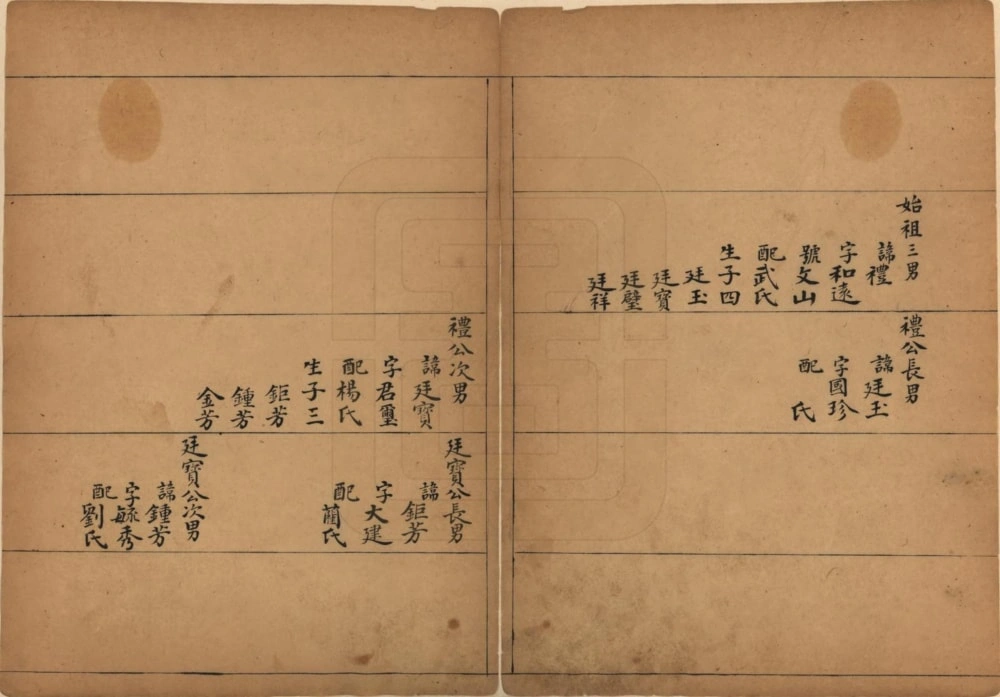 始祖三男
諱禮
字和遠
號文山
配武氏
生子四
廷玉
廷寶
廷璧
廷祥
禮公長男
諱廷玉
字國珍
配　氏
禮公次男
諱廷寶
字君璽
配楊氏
生子三
鉅芳
鍾芳
金芳
廷寶公長男
諱鉅芳
字大建
配藺氏
廷寶公次男
諱鍾芳
字毓秀
配劉氏